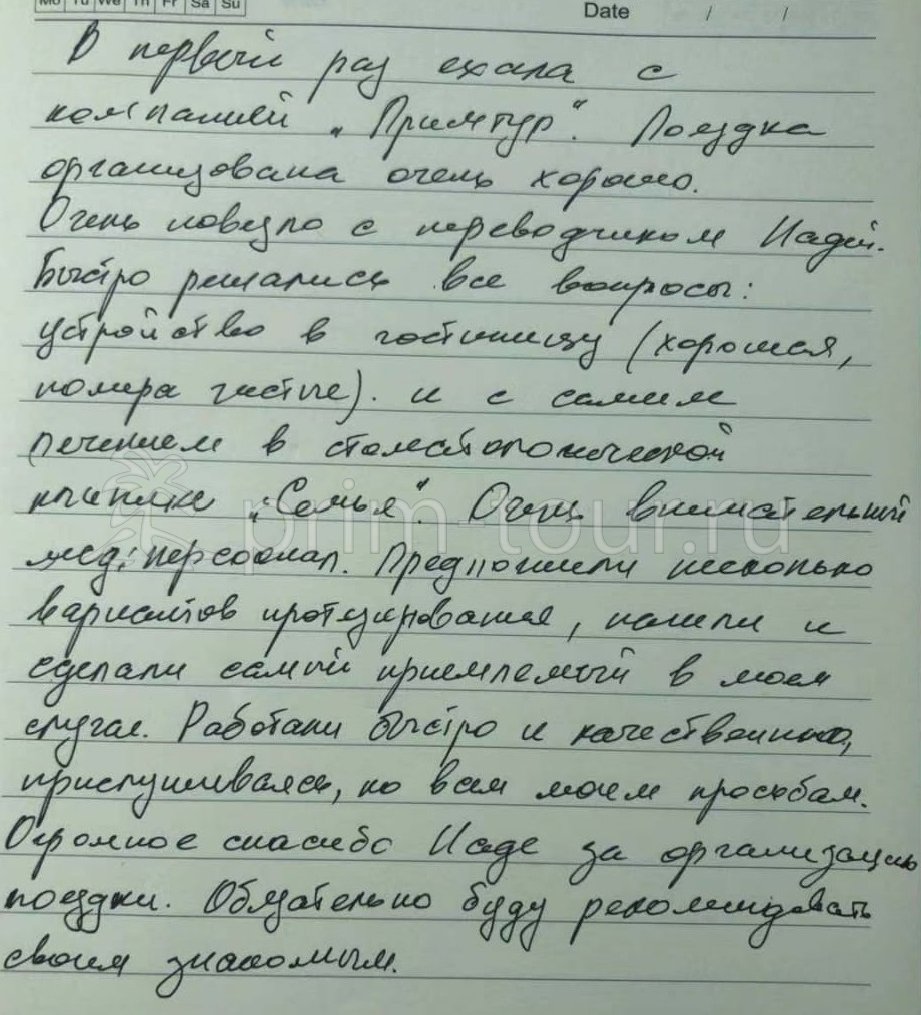 Mo Tu We Th Fr Sa Su
Date / /
В первый раз ехала с
компанией „Примтур“. Поездка
организована очень хорошо.
Очень повезло с переводчиком Надей.
Быстро решались все вопросы:
устройство в гостиницу (хорошая,
номера чистые). и с самим
лечением в стоматологической
клинике „Семья“. Очень внимательный
мед. персонал. Предложили несколько
вариантов протезирования, нашли и
сделали самый приемлемый в моем
случае. Работали быстро и качественно,
прислушиваясь, ко всем моем просьбам.
Огромное спасибо Наде за организацию
поездки. Обязательно буду рекомендовать
своим знакомым.
prim-tour.ru